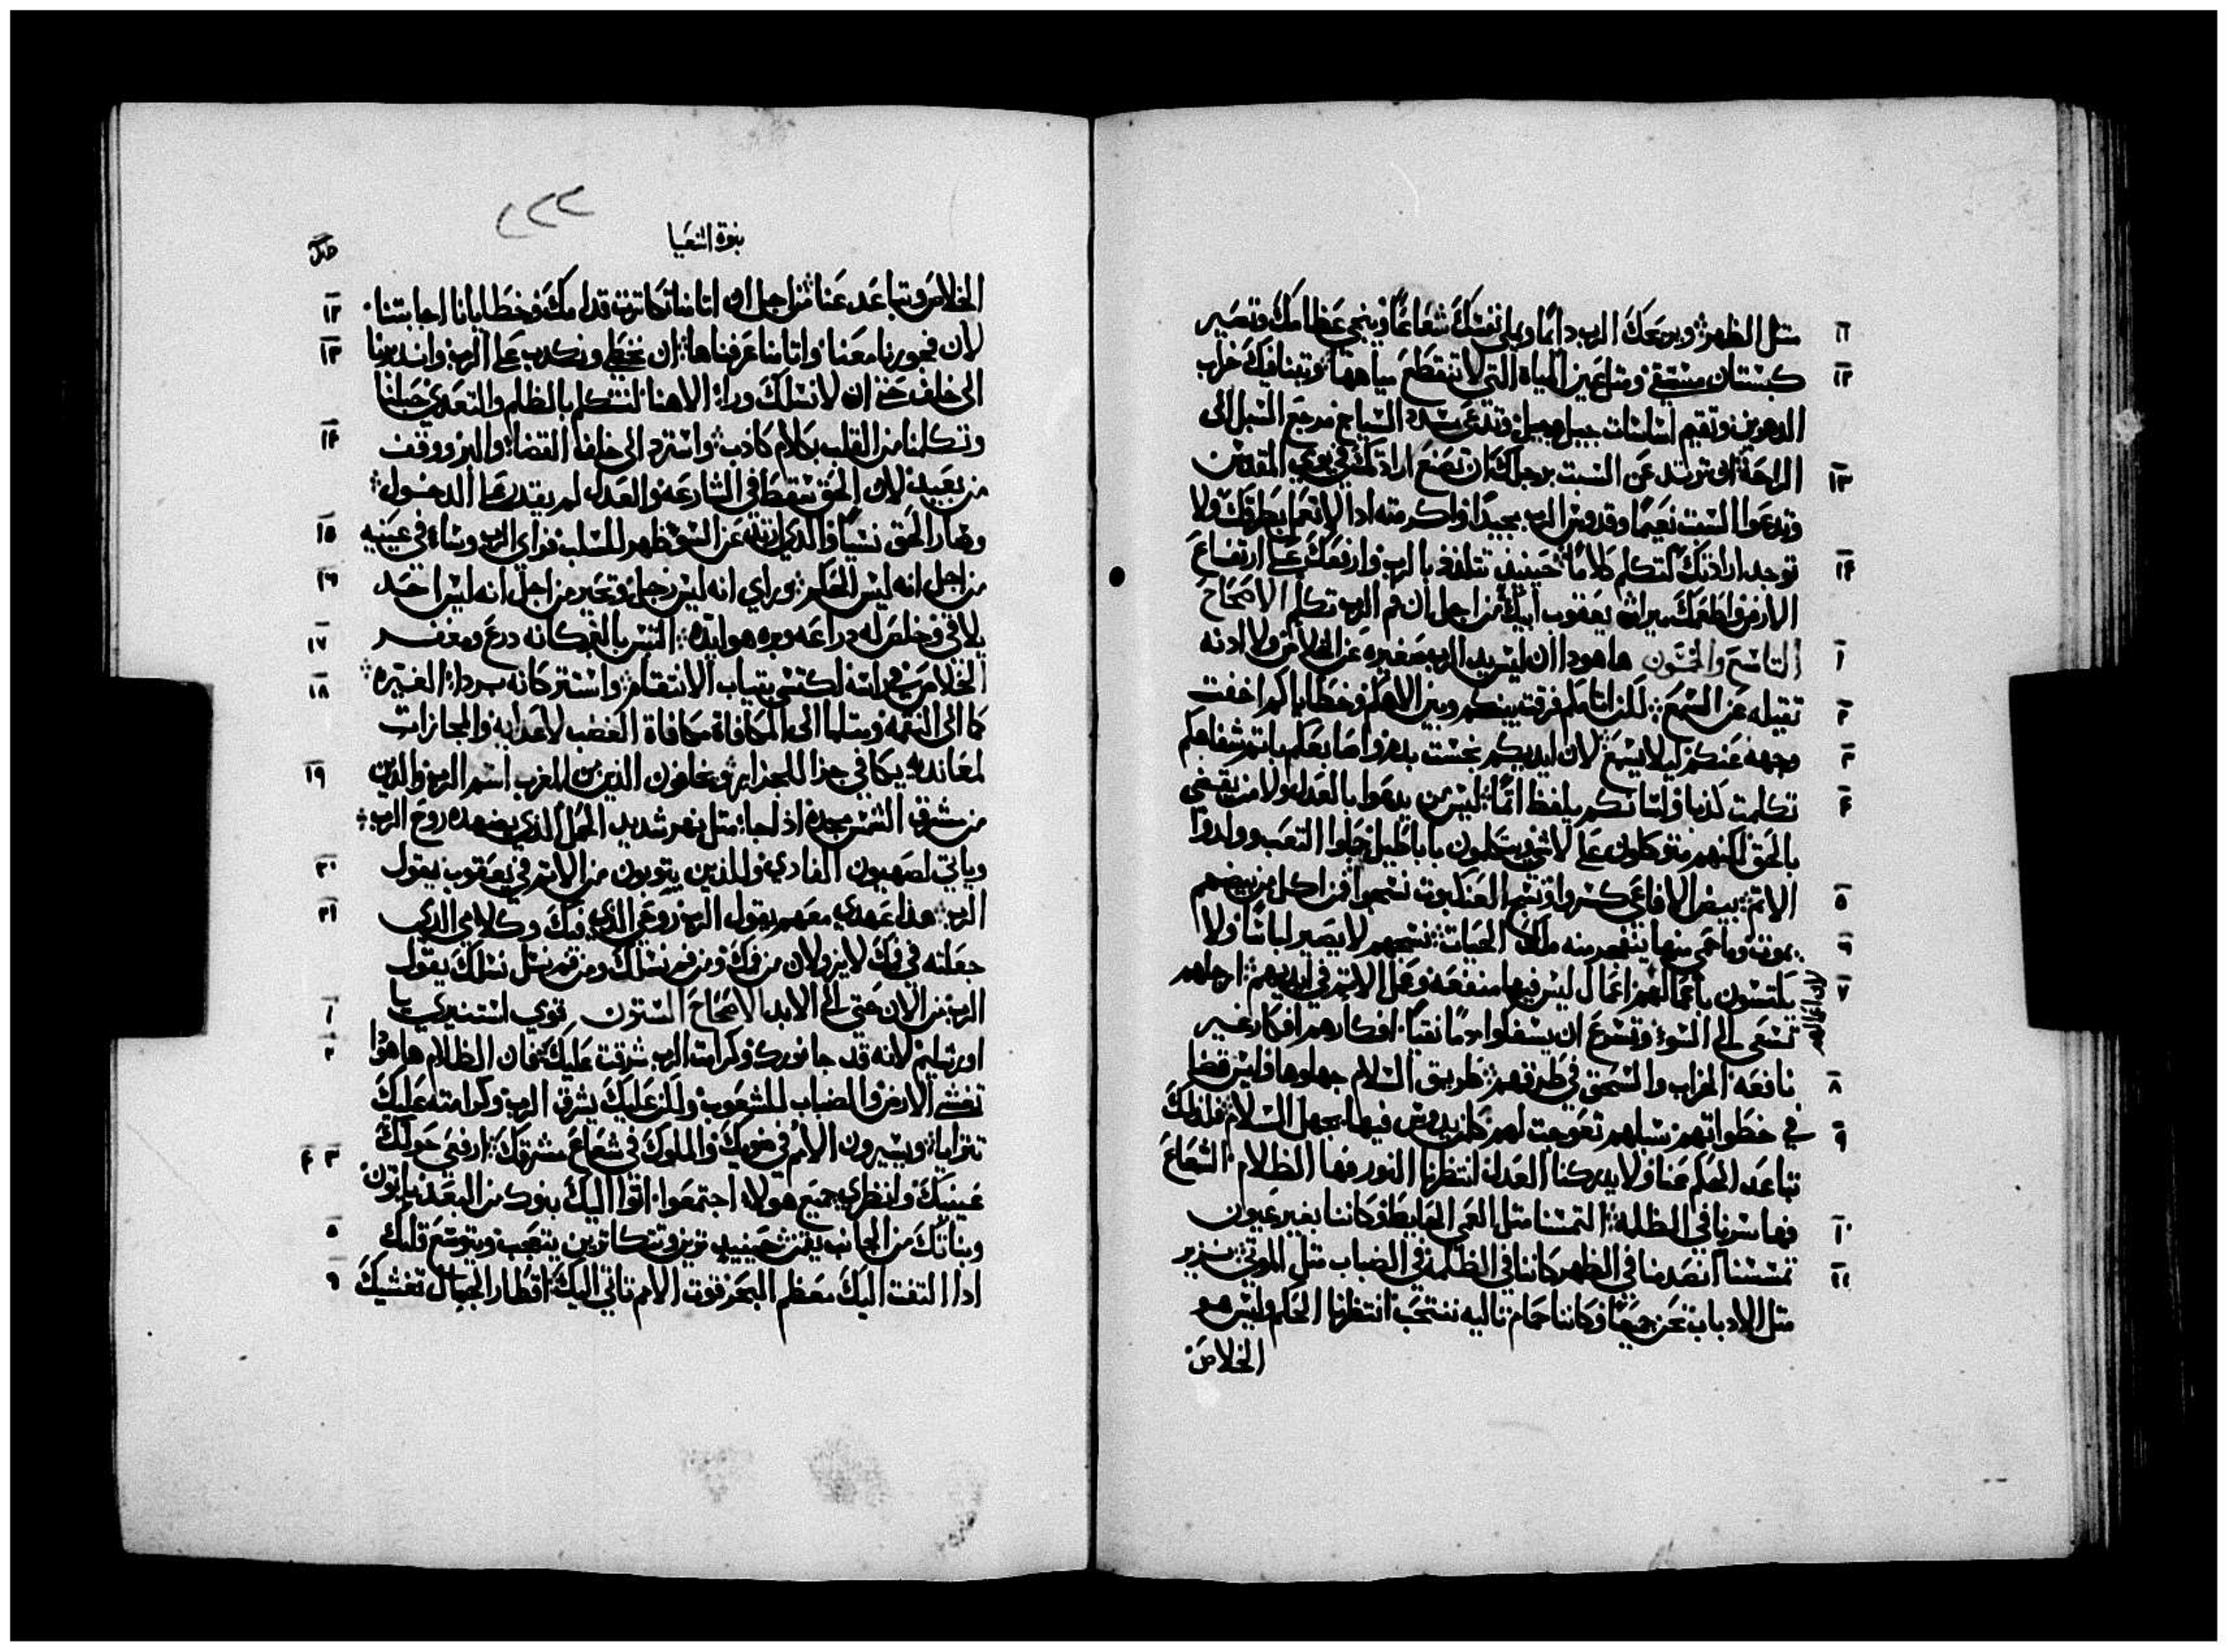 ١١ مثل الظهر ويريحك الرب دايمًا ويملى نفسك شعاعًا وينجي عظامك وتصير
١٢ كبستان مستقي ومثل عين المياه التي لا تنقطع مياهها وتبنا فيك خراب
الدهور وتقيم اساسات جيل وجيل وتدعى مشدد السياج مرجع السبل الى
١٣ الراحة ان ترتد عن السبت برجلك ان تصنع ارادتك في يومي المقدس
وتدعوا السبت نعيمًا وقدوس الرب مجيدًا واكرمته اذا لا تعمل بطرقك ولا
١٤ توجد ارادتك لتتكلم كلامًا حينيذ تتلذذ بالرب وارفعك على ارتفاع
الارض واطعمك ميراث يعقوب ابيك من اجل ان فم الرب تكلم الاصحاح
١ التاسع والخمسون هاهوذا ان ليس يد الرب صغيره عن الخلاص ولا ادنه
٢ تقيله عن السمع لكن اثامكم فرقت بينكم وبين الاهكم وخطاياكم اخفت
٣ وجهه عنكم ليلا يسمع لان ايديكم نجست بدم واصابعكم باتم شفاهكم
٤ تكلمت كذبا ولسانكم يلفظ اتمًا ليس من يدعوا بالعدل ولا من يقضي
بالحق لكنهم متوكلون على لاشي ويتكلمون باباطيل حبلوا التعب وولدوا
٥ الاتم بيض الافاعي كسروا ونسج العنكبوت نسجوا فمن اكل من بيضهم
٦ يموت وما حمي منها ينفجر منه ملك الحيات نسجهم لا يصير لباسًا ولا
٧ يكتسون باعمالهم لان اعمالهم اعمال ليس فيها منفعه وعمل الاتم في ايديهم ارجلهم
تسعى الى السوء وتسرع ان يسفكوا دمًا نقيًا افكارهم افكار غير
٨ نافعه الخراب والسحق في طرقهم طريق السلام جهلوها وليس قضا
٩ في خطواتهم سبلهم تعوجت لهم كل من يدوس فيها يجهل السلام فلذلك
تباعد الحكم عنا ولا يدركنا العدل انتظرنا النور فها الظلام الشعاع
١٠ فها سرنا في الظلمه التمسنا مثل العمي الحايط وكاننا بغير عيون
١١ تمسسنا انصدمنا في الظهر كاننا في الظلمه في الضباب مثل الموتى نزير
مثل الادباب نحن جميعًا وكاننا حمام تاليه ننتحب انتظرنا الحكم وليس هو
الخلاص
٢٢٢
بنوة اشعيا
١٢ الخلاص وتباعد عنا من اجل ان اثامنا تكاثرت قدامك وخطايانا اجابتنا
١٣ لان فجورنا معنا واثامنا عرفناها ان نخطي ونكدب على الرب وانديرنا
الى خلف حتى ان لا نسلك وراء الاهنا لنتكلم بالظلم والتعدي حبلنا
١٤ وتكلمنا من القلب بكلام كاذب واسترد الى خلف القضاء والبر ووقف
من بعيد لان الحق سقط في الشارعه والعدل لم يقدر على الدخول
١٥ وصار الحق نسيًا والذي ارتد عن السو ظهر للسلب فراي الرب وساء في عينيه
١٦ من اجل انه ليس الحكم وراي انه ليس رجل وتحير من اجل انه ليس احد
١٧ يلاقي وخلص له دراعه وبره هو ايده التبس بالبر كانه درع ومغفر
١٨ الخلاص في راسه لكتسى بتياب الانتقام واستتر كانه برداء الغيره
كما الى النقمه ومتلما الى المكافاة مكافاة الغضب لاعدايه والمجازات
١٩ لمعانديه يكافي جزا للجزاير ويخافون الذين من المغرب اسم الرب والذين
من مشرق الشمس مجده اذا جا مثل نهر شديد الحمل الذي يضهده روح الرب
٢٠ وياتي لصهيون الفادي وللذين يتوبون من الاتم في يعقوب يقول
٢١ الرب هذا عهدي معهم يقول الرب روحي الذي فيك وكلامي الذي
جعلته في فمك لا يزولان من فمك ومن فم نسلك ومن فم نسل نسلك يقول
١ الرب من الان حتى الى الابد الاصحاح الستون قومي استنيري يا
٢ اورشليم لانه قد جا نورك وكرامت الرب شرقت عليك فان الظلام هاهوذا
تغشى الارض والضباب للشعوب ولكن عليك يشرق الرب وكرامته عليك
٣ ٤ تترايا ويسيرون الامم في ضوك والملوك في شعاع مشرقك ارفعي حولك
عينيك وانظري جميع هولاء اجتمعوا اتوا اليك بنوك من البعد ياتون
٥ وبناتك من الجانب حينيذ ترين وتتكاترين يتعجب ويتوسع قلبك
٦ اذا التفت اليك معظم البحر قوت الامم تاتي اليك اقطار الجمال تغشيك